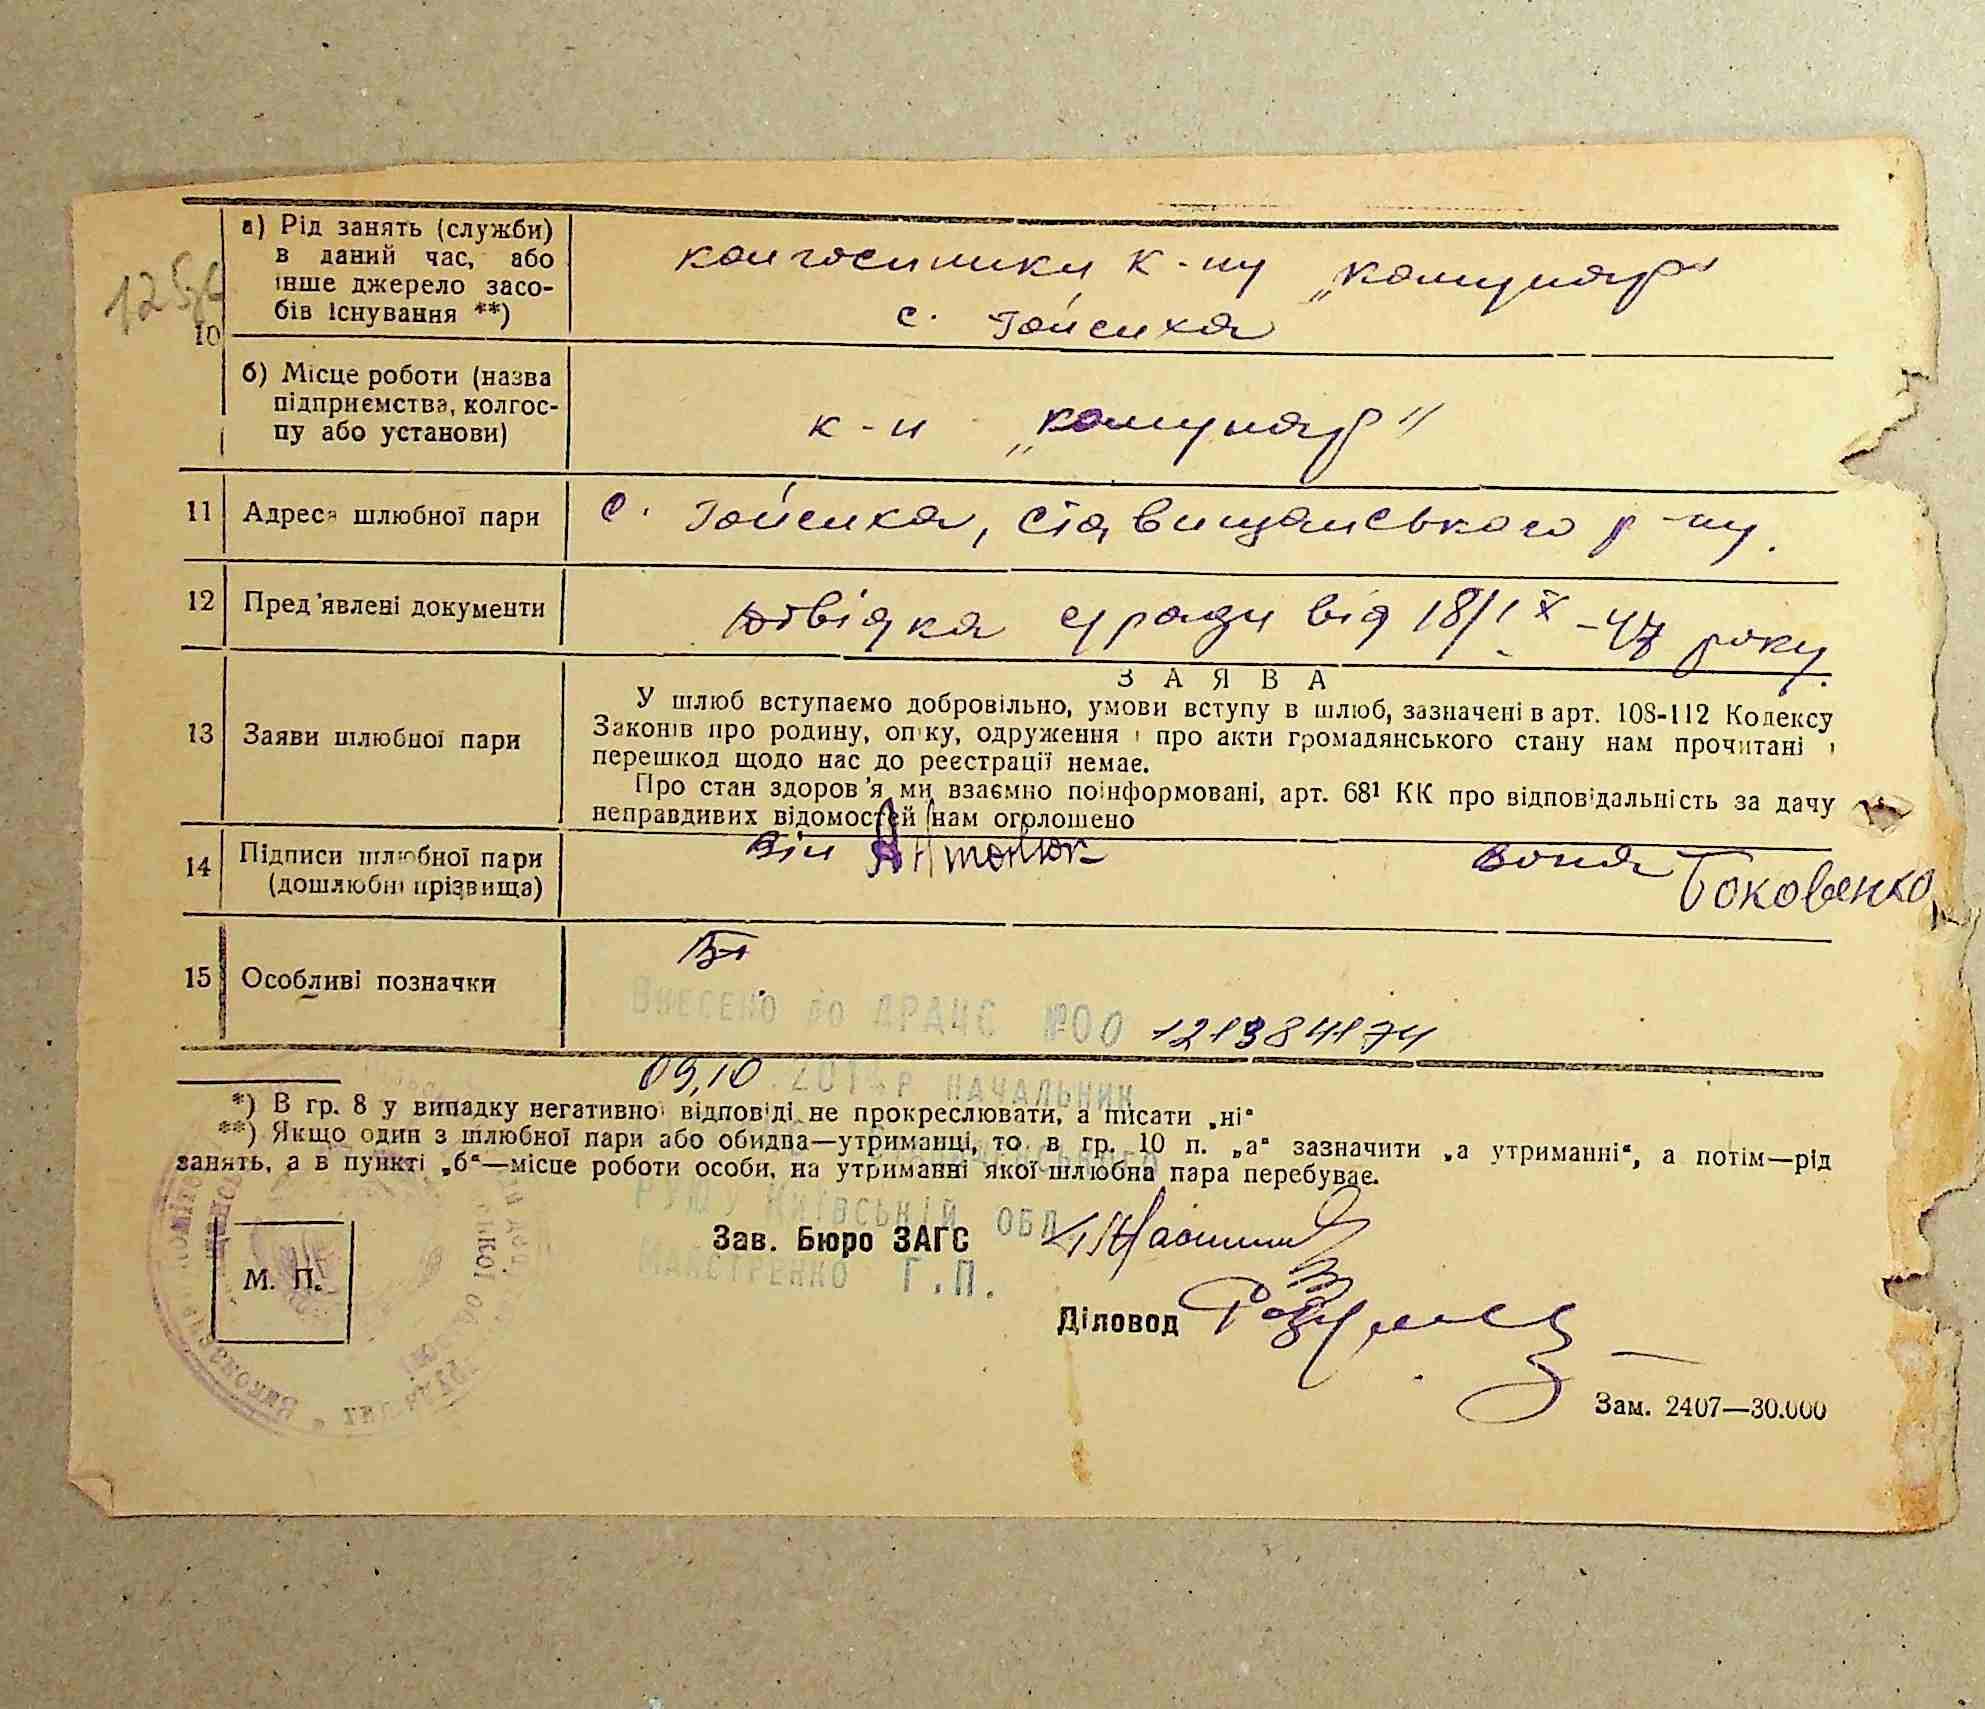 а) Рід занять (служби)
в даний час, або
інше джерело засо-
бів існування **)
колгоспники к-пу „комунар"
с. Гойсиха
125
10
б) Місце роботи (назва
підприємства, колгос-
пу або установи)
к-п „комунар"
11 Адреса шлюбної пари
с. Гойсиха, Ставищанського р-ну.
12 Пред'явлені документи
довідка с/ради від 18/IX-47 року.
13 Заяви шлюбної пари
ЗАЯВА
У шлюб вступаємо добровільно, умови вступу в шлюб, зазначені в арт. 108-112 Кодексу
Законів про родину, опіку, одруження і про акти громадянського стану нам прочитані і
перешкод щодо нас до реєстрації немає.
Про стан здоров'я ми взаємно поінформовані, арт. 68¹ КК про відповідальність за дачу
неправдивих відомостей нам оголошено
14 Підписи шлюбної пари
(дошлюбні прізвища)
Він Антонюк
Вона Боковенко
15 Особливі позначки
Внесено до ДРАЦС №00
09.10.201 р начальник
*) В гр. 8 у випадку негативної відповіді не прокреслювати, а писати „ні"
**) Якщо один з шлюбної пари або обидва—утриманці, то в гр. 10 п. „а" зазначити „а утриманні", а потім—рід
занять, а в пункті „б"—місце роботи особи, на утриманні якої шлюбна пара перебуває.
Київській обл
Зав. Бюро ЗАГС
Г.П.
М. П.
Діловод
Зам. 2407—30.000